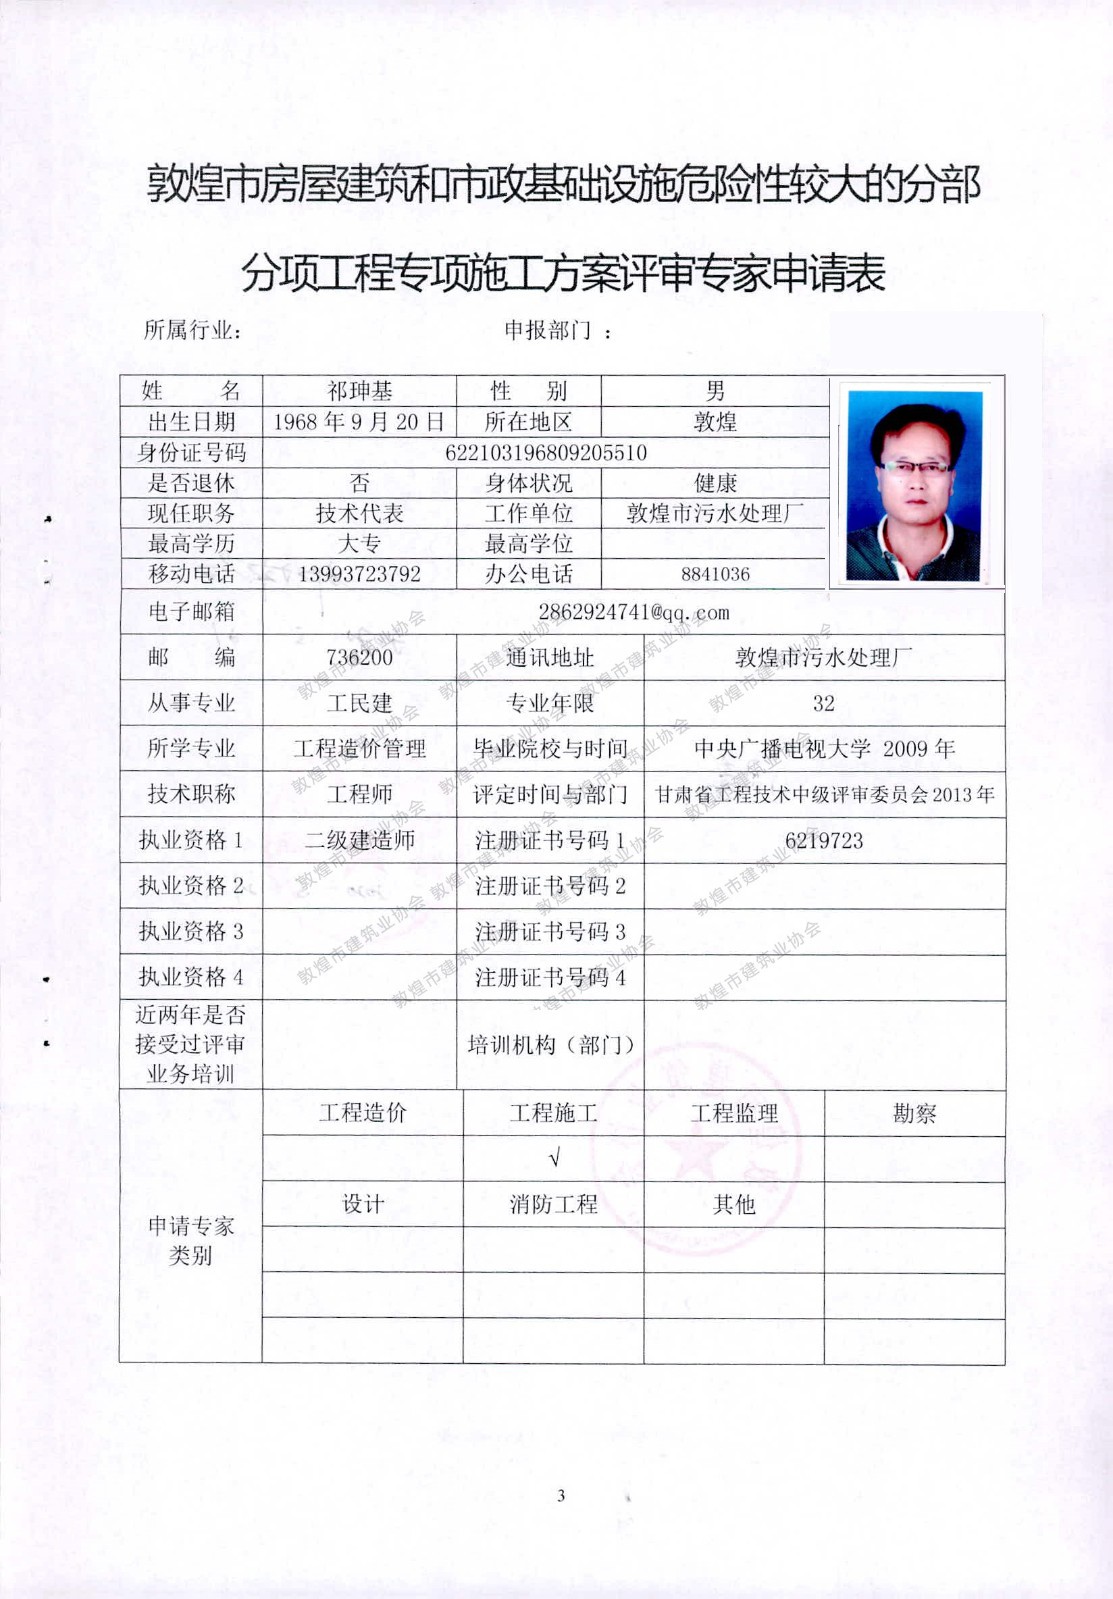 敦煌市房屋建筑和市政基础设施危险性较大的分部
分项工程专项施工方案评审专家申请表
所属行业: 申报部门 :
姓 名 祁珅基 性 别 男
出生日期 1968 年 9 月 20 日 所在地区 敦煌
身份证号码 622103196809205510
是否退休 否 身体状况 健康
现任职务 技术代表 工作单位 敦煌市污水处理厂
最高学历 大专 最高学位
移动电话 13993723792 办公电话 8841036
电子邮箱 2862924741@qq.com
邮 编 736200 通讯地址 敦煌市污水处理厂
从事专业 工民建 专业年限 32
所学专业 工程造价管理 毕业院校与时间 中央广播电视大学 2009 年
技术职称 工程师 评定时间与部门 甘肃省工程技术中级评审委员会 2013 年
执业资格 1 二级建造师 注册证书号码 1 6219723
执业资格 2 注册证书号码 2
执业资格 3 注册证书号码 3
执业资格 4 注册证书号码 4
近两年是否
接受过评审
业务培训
培训机构（部门）
工程造价 工程施工 工程监理 勘察
√
设计 消防工程 其他
申请专家
类别
敦煌市建筑业协会
3